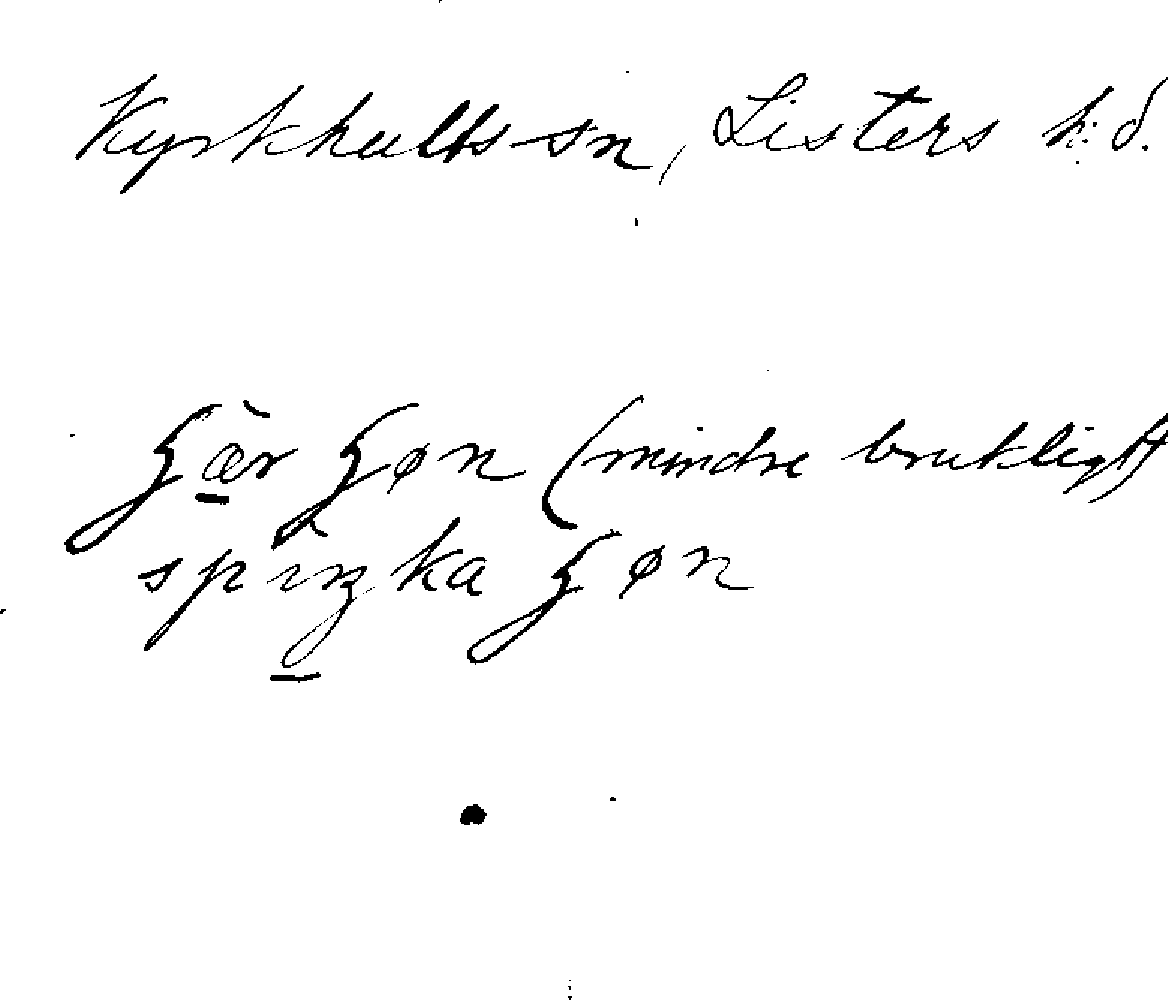 Kyrkhults sn, Listers h:d.
ʒæ̀r ʒøn (mindre brukligt)
spìŋka ʒøn